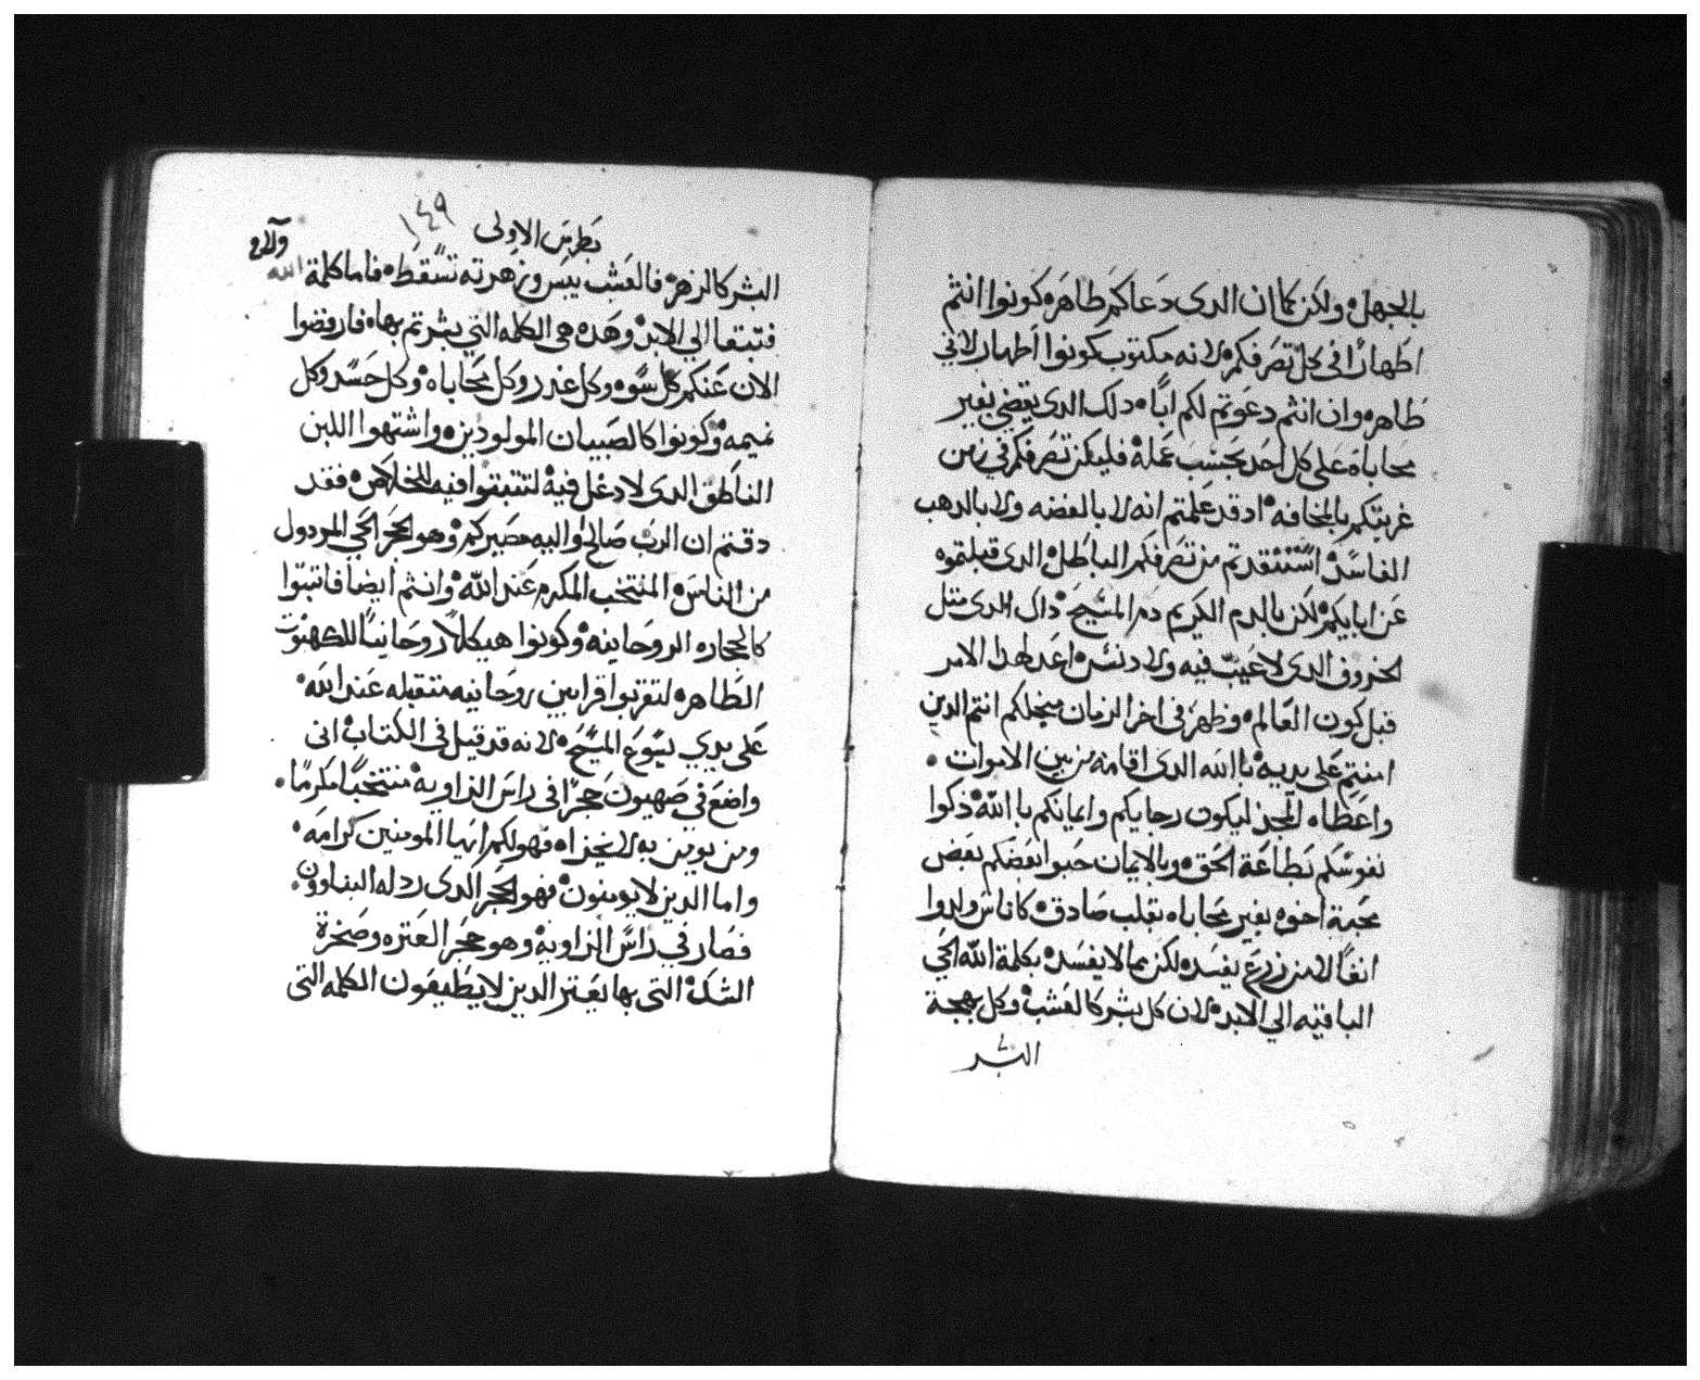 بالجهل ولكن كما ان الدى دعاكم طاهره كونوا انتم
اطهارًا فى كل تصرفكم لانه مكتوب كونوا اطهار لاني
طاهر وان انتم دعوتم لكم ابًا دلك الدى يقضي بغير
محاباة على كل احد بحسب عمله فليكن تصرفكم في زمن
غربتكم بالمخافه اد قد علمتم انه لا بالفضه ولا بالدهب
الفاسد استنقدتم من تصرفكم الباطل الدى قبلتموه
عن ابايكم لكن بالدم الكريم دم المسيح داك الدى مثل
الخروف الدى لا عيب فيه ولا دنس اعد لهدا الامر
قبل كون العالم وظهر فى اخر الزمان منجلكم انتم الدين
امنتم على يديه باالله الدى اقامه من بين الاموات
واعطاه المجد ليكون رجايكم وايمانكم باالله ذكوا
نفوسكم بطاعة الحق وبالايمان حبوا بعضكم بعض
محبة اخوه بغير محاباه بقلب صادق كاناس ولدوا
انفًا لا من زرع يفسد لكن مما لا يفسد بكلمة الله الحي
الباقيه الي الابد لان كل بشر كالعشب وكل بهجة
البشر
بطرس الاولى
١٤٩
البشر كالزهره فالعشب ييبس وزهرته تسقط فاما كلمة الله
فتبقا الي الابد وهده هى الكلمه التي بشرتم بها فارفضوا
الان عنكم كل سوه وكل غدر وكل محاباه وكل حسد وكل
نميمه وكونوا كالصبيان المولودين واشتهوا اللبن
الناطق الدى لا دغل فيه لتتبتوا فيه للخلاص فقد
دقتم ان الرب صالح واليه مصيركم وهو الحجر الحي المردول
من الناس المنتخب المكرم عند الله وانتم ايضا فاتبتوا
كالحجاره الروحانيه وكونوا هيكلاً روحانيًا للكهنوت
الطاهره لتقربوا قرابين روحانيه متقبله عند الله
على يدي يسوع المسيح لانه قد قيل فى الكتاب انى
واضع في صهيون حجرًا فى راس الزاويه منتخبًا مكرمًا
ومن يومن به لا يخزاه فهو لكم ايها المومنين كرامه
واما الدين لا يومنون فهو الحجر الدى ردله البناوون
فصار في راس الزاويه وهو حجر العتره وصخرة
الشك التى بها يعتر الدين لا يطيعون الكلمه التى